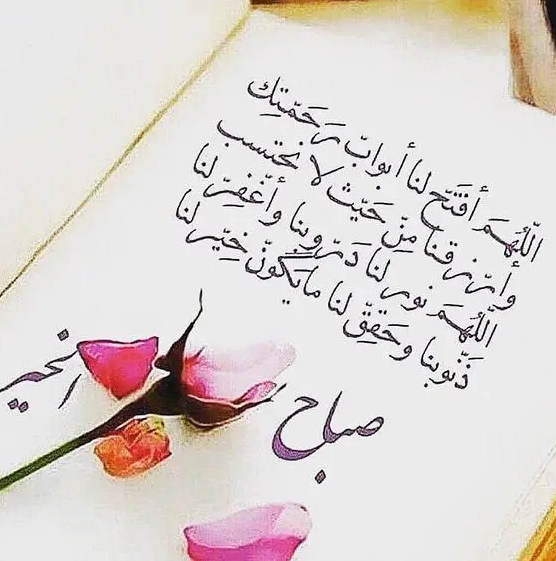 اللّهُمَ أفتَح لنا أبواب رَحَمّتِك
وأرّزقنا مِنّ حَيّث لا نحتسب
اللّهُمَ نور لنا دَرّوبنا وأغّفِرّ لنا
ذَنّوبنا وحَقِقّ لنا مايَكُونّ خِيّر لنا
صباح الخير